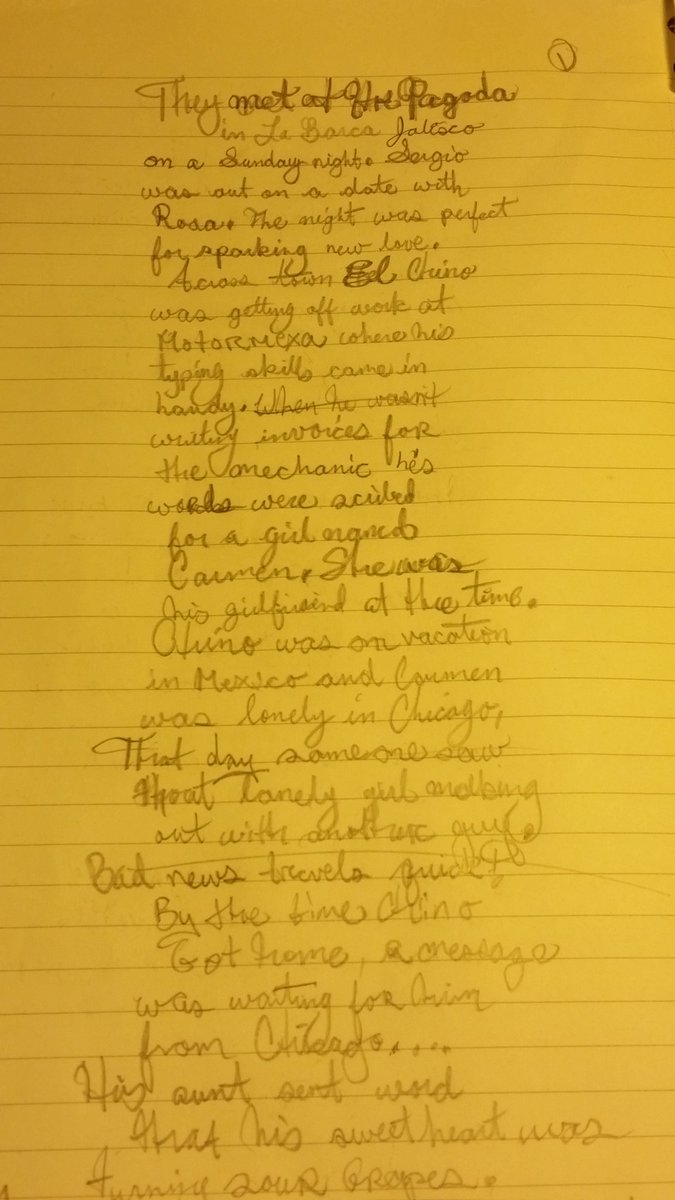 1
They met at the Pagoda
in La Barca Jalisco
on a Sunday night. Sergio
was out on a date with
Rosa. The night was perfect
for sparking new love.
Across town El Chino
was getting off work at
Motormexa where his
typing skills came in
handy. When he wasn't
writing invoices for
the mechanic his
words were scribed
for a girl named
Carmen. She was
his girlfriend at the time.
Chino was on vacation
in Mexico and Carmen
was lonely in Chicago,
That day someone saw
that lonely girl
out with another guy.
Bad news travels quick!
By the time Chino
Got home, a message
was waiting for him
from Chicago....
His aunt sent word
that his sweetheart was
turning sour Grapes.